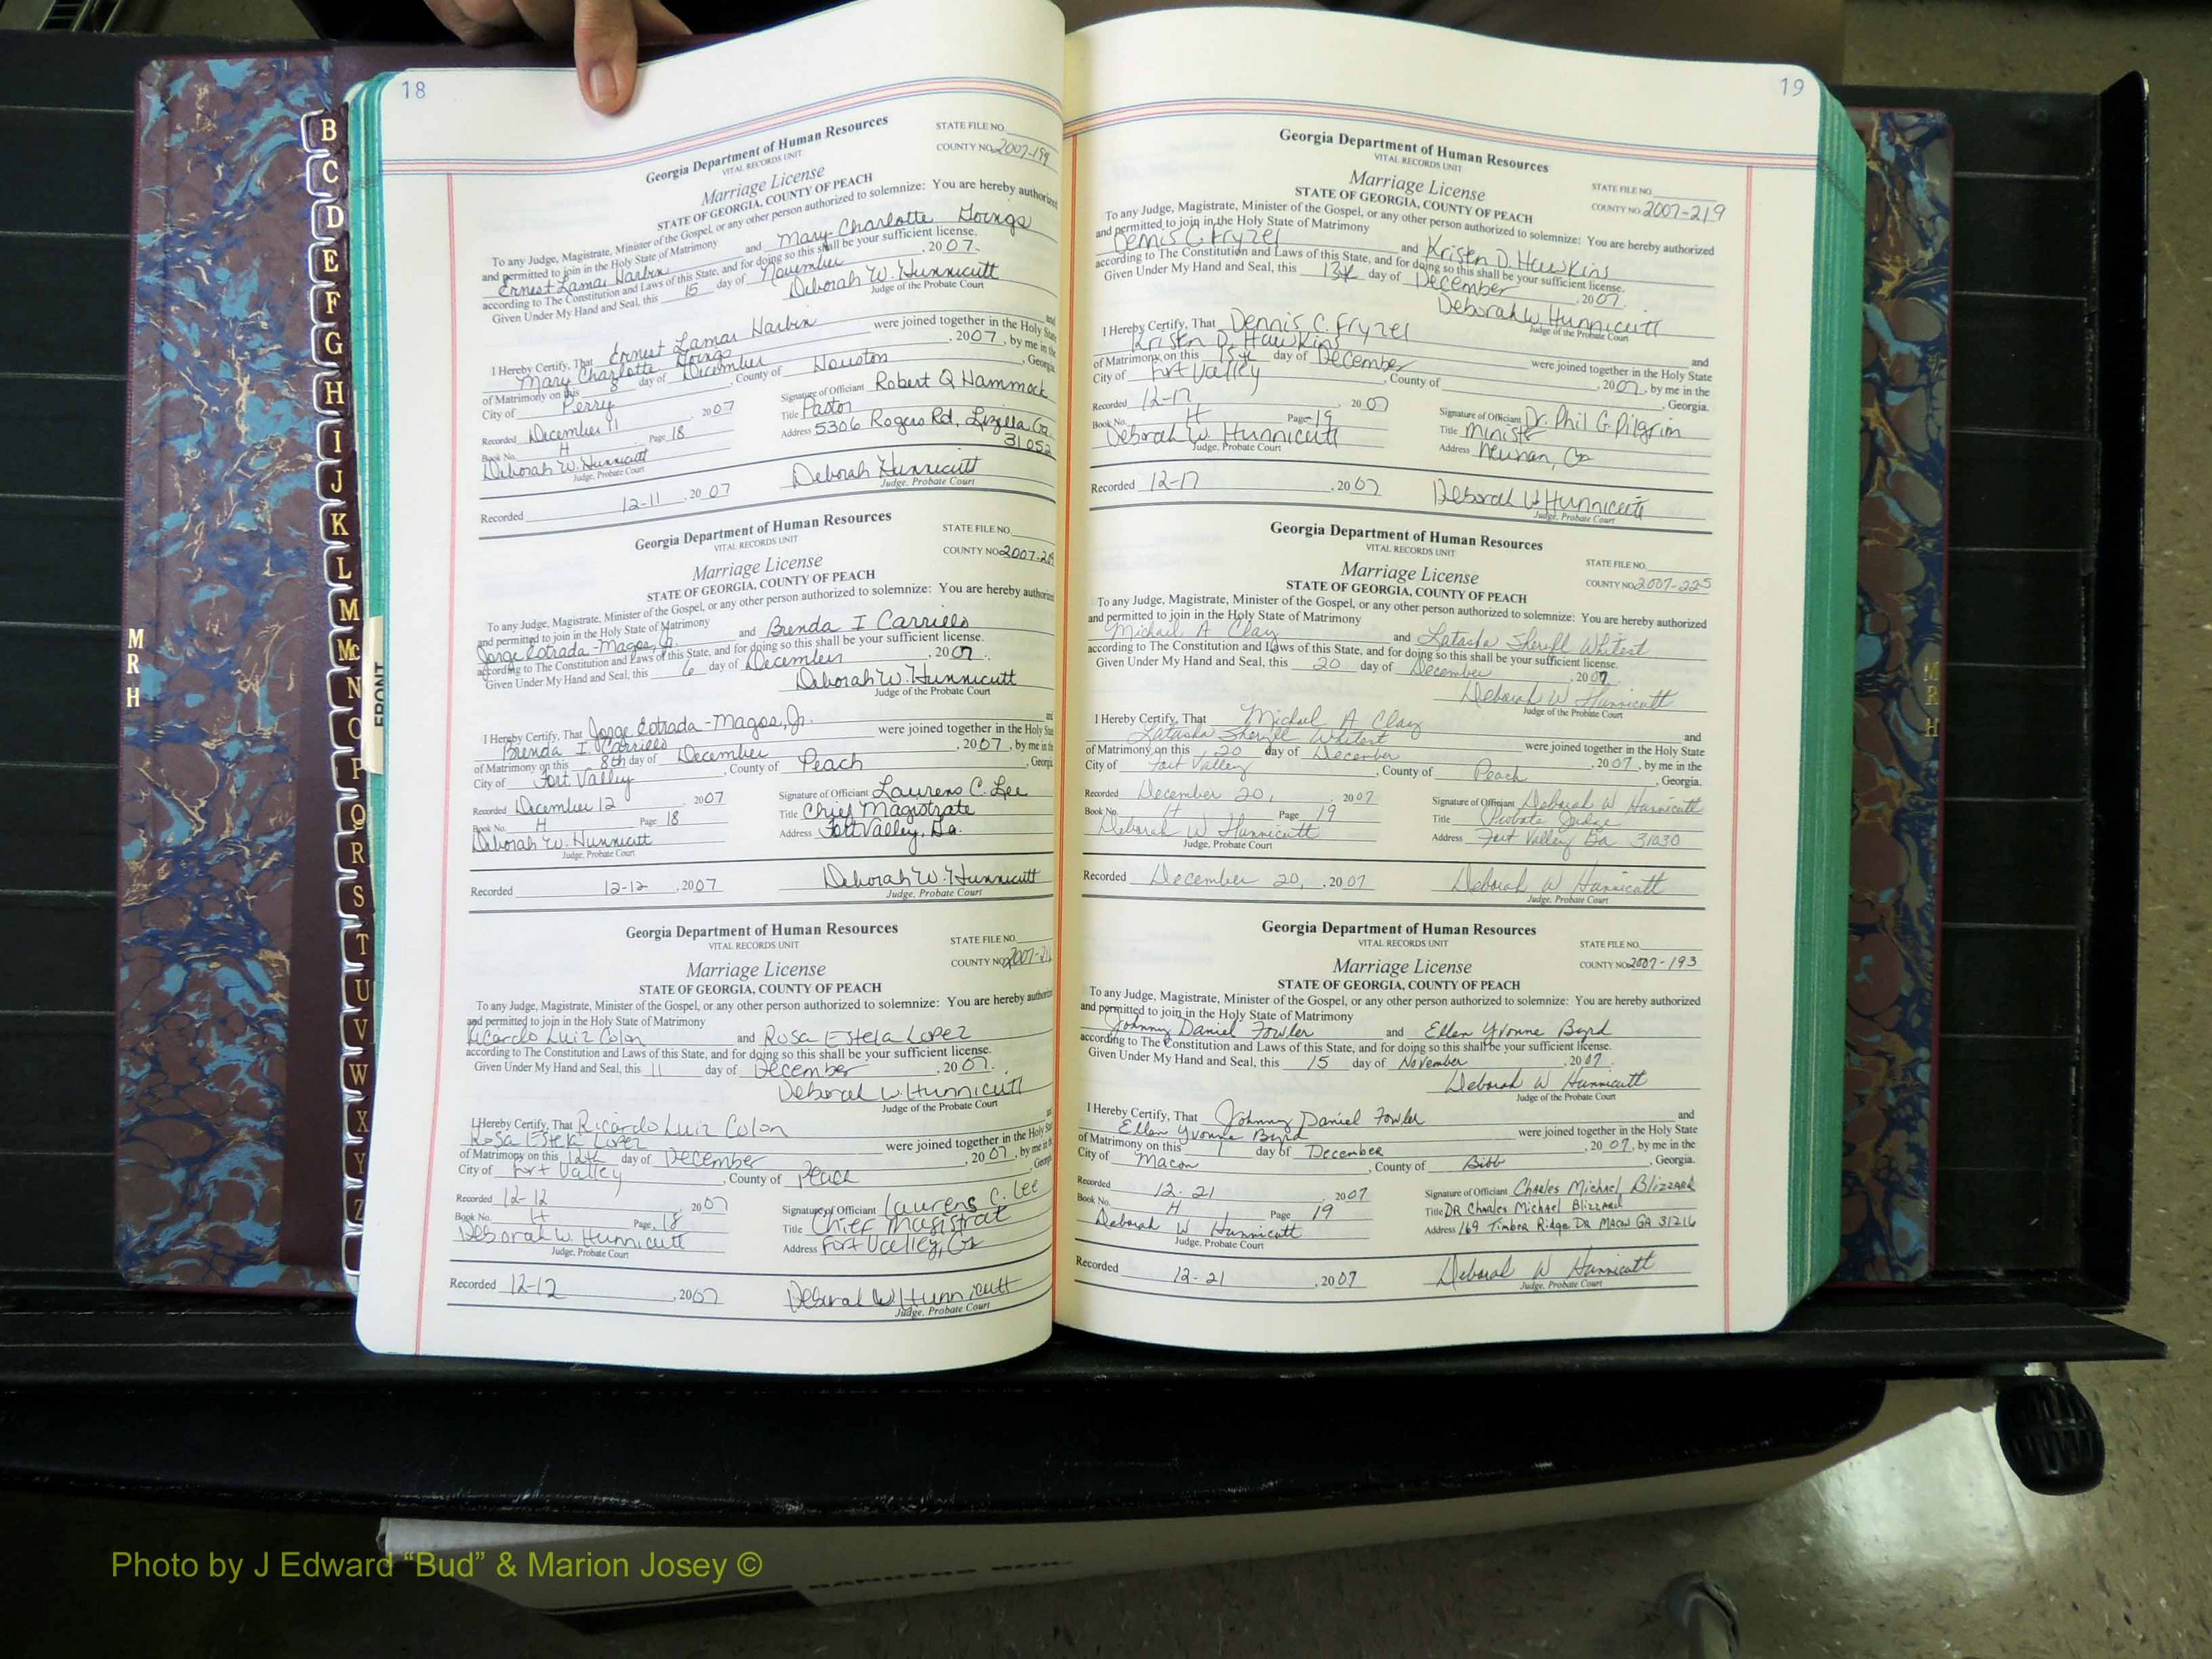 18
Georgia Department of Human Resources
VITAL RECORDS UNIT
STATE FILE NO.
COUNTY NO. 2007-199
Marriage License
STATE OF GEORGIA, COUNTY OF PEACH
To any Judge, Magistrate, Minister of the Gospel, or any other person authorized to solemnize: You are hereby authorized
and permitted to join in the Holy State of Matrimony
Ernest Lamar Harbin and Mary Charlotte Goings
according to The Constitution and Laws of this State, and for doing so this shall be your sufficient license.
Given Under My Hand and Seal, this 15 day of November, 2007.
Deborah W. Hunnicutt
Judge of the Probate Court
I Hereby Certify, That Ernest Lamar Harbin and
Mary Charlotte Goings were joined together in the Holy State
of Matrimony on this 8 day of December, 2007, by me in the
City of Perry, County of Houston, Georgia.
Recorded December 11, 2007
Signature of Officiant Robert Q Hammock
Book No. H Page 18
Title Pastor
Deborah W. Hunnicutt
Address 5306 Rogers Rd, Lizella Ga.
31052
Judge, Probate Court
Recorded 12-11, 2007
Deborah Hunnicutt
Judge, Probate Court
Georgia Department of Human Resources
VITAL RECORDS UNIT
STATE FILE NO.
COUNTY NO.
Marriage License
STATE OF GEORGIA, COUNTY OF PEACH
To any Judge, Magistrate, Minister of the Gospel, or any other person authorized to solemnize: You are hereby authorized
and permitted to join in the Holy State of Matrimony
Jorge Estrada-Magos, Jr. and Brenda I Carrillo
according to The Constitution and Laws of this State, and for doing so this shall be your sufficient license.
Given Under My Hand and Seal, this 6 day of December, 2007.
Deborah W. Hunnicutt
Judge of the Probate Court
I Hereby Certify, That Jorge Estrada-Magos, Jr. and
Brenda I. Carrillo were joined together in the Holy State
of Matrimony on this 8th day of December, 2007, by me in the
City of Fort Valley, County of Peach, Georgia
Recorded December 12, 2007
Signature of Officiant Laurens C. Lee
Book No. H Page 18
Title Chief Magistrate
Deborah W. Hunnicutt
Address Fort Valley, Ga.
Judge, Probate Court
Recorded 12-12, 2007
Deborah W. Hunnicutt
Judge, Probate Court
Georgia Department of Human Resources
VITAL RECORDS UNIT
STATE FILE NO.
COUNTY NO.
Marriage License
STATE OF GEORGIA, COUNTY OF PEACH
To any Judge, Magistrate, Minister of the Gospel, or any other person authorized to solemnize: You are hereby authorized
and permitted to join in the Holy State of Matrimony
Ricardo Luiz Colon and Rosa Estela Lopez
according to The Constitution and Laws of this State, and for doing so this shall be your sufficient license.
Given Under My Hand and Seal, this 11 day of December, 2007.
Deborah W. Hunnicutt
Judge of the Probate Court
I Hereby Certify, That Ricardo Luiz Colon and
Rosa Estela Lopez were joined together in the Holy State
of Matrimony on this 12th day of December, 2007, by me in the
City of Fort Valley, County of Peach, Georgia
Recorded 12-12 2007
Signature of Officiant Laurens C. Lee
Book No. H Page 18
Title Chief Magistrat
Deborah W. Hunnicutt
Address Fort Valley, Ga
Judge, Probate Court
Recorded 12-12, 2007
Deborah W Hunnicutt
Judge, Probate Court
19
Georgia Department of Human Resources
VITAL RECORDS UNIT
Marriage License
STATE FILE NO.
STATE OF GEORGIA, COUNTY OF PEACH
COUNTY NO. 2007-219
To any Judge, Magistrate, Minister of the Gospel, or any other person authorized to solemnize: You are hereby authorized
and permitted to join in the Holy State of Matrimony
Dennis C. Fryzel and Kristen D. Hawkins
according to The Constitution and Laws of this State, and for doing so this shall be your sufficient license.
Given Under My Hand and Seal, this day of December, 2007.
Deborah W. Hunnicutt
Judge of the Probate Court
I Hereby Certify, That Dennis C. Fryzel and
Kristen D. Hawkins were joined together in the Holy State
of Matrimony on this day of December, 2007, by me in the
City of Fort Valley, County of, Georgia.
Recorded 12-17 2007
Signature of Officiant Dr. Phil G. Pilgrim
Book No. H Page 19
Title Minister
Deborah W. Hunnicutt
Address Newnan, Ga
Judge, Probate Court
Recorded 12-17, 2007
Deborah W Hunnicutt
Judge, Probate Court
Georgia Department of Human Resources
VITAL RECORDS UNIT
Marriage License
STATE FILE NO.
STATE OF GEORGIA, COUNTY OF PEACH
COUNTY NO. 2007-225
To any Judge, Magistrate, Minister of the Gospel, or any other person authorized to solemnize: You are hereby authorized
and permitted to join in the Holy State of Matrimony
Michael A Clay and Latasha Sherell Whitest
according to The Constitution and Laws of this State, and for doing so this shall be your sufficient license.
Given Under My Hand and Seal, this 20 day of December, 2007.
Deborah W Hunnicutt
Judge of the Probate Court
I Hereby Certify, That Michael A Clay and
Latasha Sherell Whitest were joined together in the Holy State
of Matrimony on this 20 day of December, 2007, by me in the
City of Fort Valley, County of Peach, Georgia.
Recorded December 20, 2007
Signature of Officiant Deborah W Hunnicutt
Book No. H Page 19
Title Probate Judge
Deborah W Hunnicutt
Address Fort Valley Ga 31030
Judge, Probate Court
Recorded December 20, 2007
Deborah W Hunnicutt
Judge, Probate Court
Georgia Department of Human Resources
VITAL RECORDS UNIT
STATE FILE NO.
Marriage License
COUNTY NO. 2007-193
STATE OF GEORGIA, COUNTY OF PEACH
To any Judge, Magistrate, Minister of the Gospel, or any other person authorized to solemnize: You are hereby authorized
and permitted to join in the Holy State of Matrimony
Johnny Daniel Fowler and Ellen Yvonne Byrd
according to The Constitution and Laws of this State, and for doing so this shall be your sufficient license.
Given Under My Hand and Seal, this 15 day of November, 2007.
Deborah W Hunnicutt
Judge of the Probate Court
I Hereby Certify, That Johnny Daniel Fowler and
Ellen Yvonne Byrd were joined together in the Holy State
of Matrimony on this 1 day of December, 2007, by me in the
City of Macon, County of Bibb, Georgia.
Recorded 12-21, 2007
Signature of Officiant Charles Michael Blizzard
Book No. H Page 19
Title DR Charles Michael Blizzard
Deborah W Hunnicutt
Address 169 Timber Ridge DR MACON GA 31216
Judge, Probate Court
Recorded 12-21, 2007
Deborah W Hunnicutt
Judge, Probate Court
B
C
D
E
F
G
H
I
J
K
L
M
Mc
N
O
P
Q
R
S
T
U
V
W
X
Y
Z
FRONT
M
R
H
M
R
H
Photo by J Edward “Bud” & Marion Josey ©